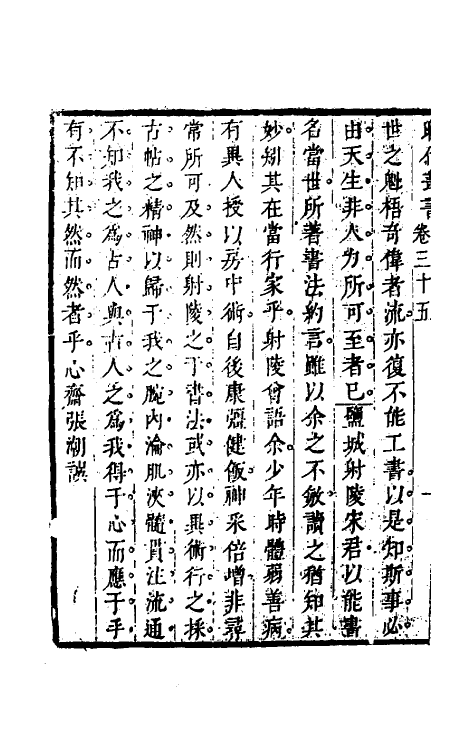 昭代叢書 卷三十五 一
世之魁梧奇偉者流亦復不能工書以是知斯事必
由天生非人力所可至者已鹽城射陵宋君以能書
名當世所著書法約言雖以余之不敏讀之猶知其
妙矧其在當行家乎射陵曾語余少年時體弱善病
有異人授以房中術自後康彊健飯神采倍增非尋
常所可及然則射陵之于書法或亦以異術行之採
古帖之精神以歸于我之腕內淪肌浹髓貫注流通
不知我之爲古人與古人之爲我得于心而應于手
有不知其然而然者乎心齋張潮譔